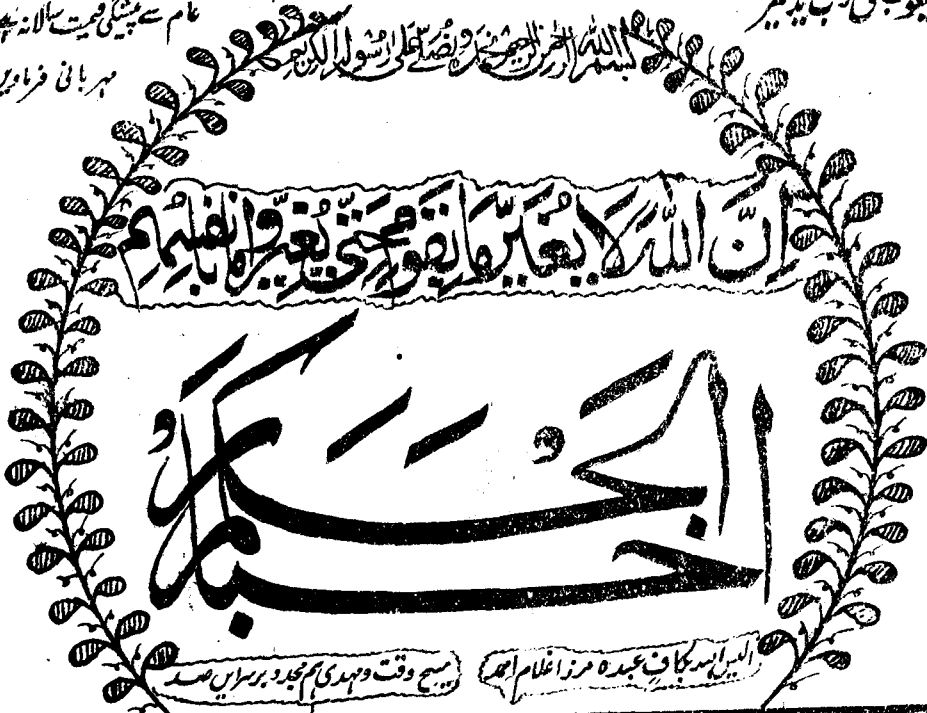 عام سے پیشگی قیمت سالانہ
مہربانی فرماویں
بسم الله الرحمن الرحيم نحمده ونصلي على رسوله الكريم
اِنَّ اللّٰهَ لَا يُغَيِّرُ مَا بِقَوْمٍ حَتّٰى يُغَيِّرُوا مَا بِاَنْفُسِهِمْ
الحَكَم
اخبار
الیس الله بکافٍ عبده مرزا غلام احمد مسیح وقت و مہدی ہم مجدد بر سر این صد